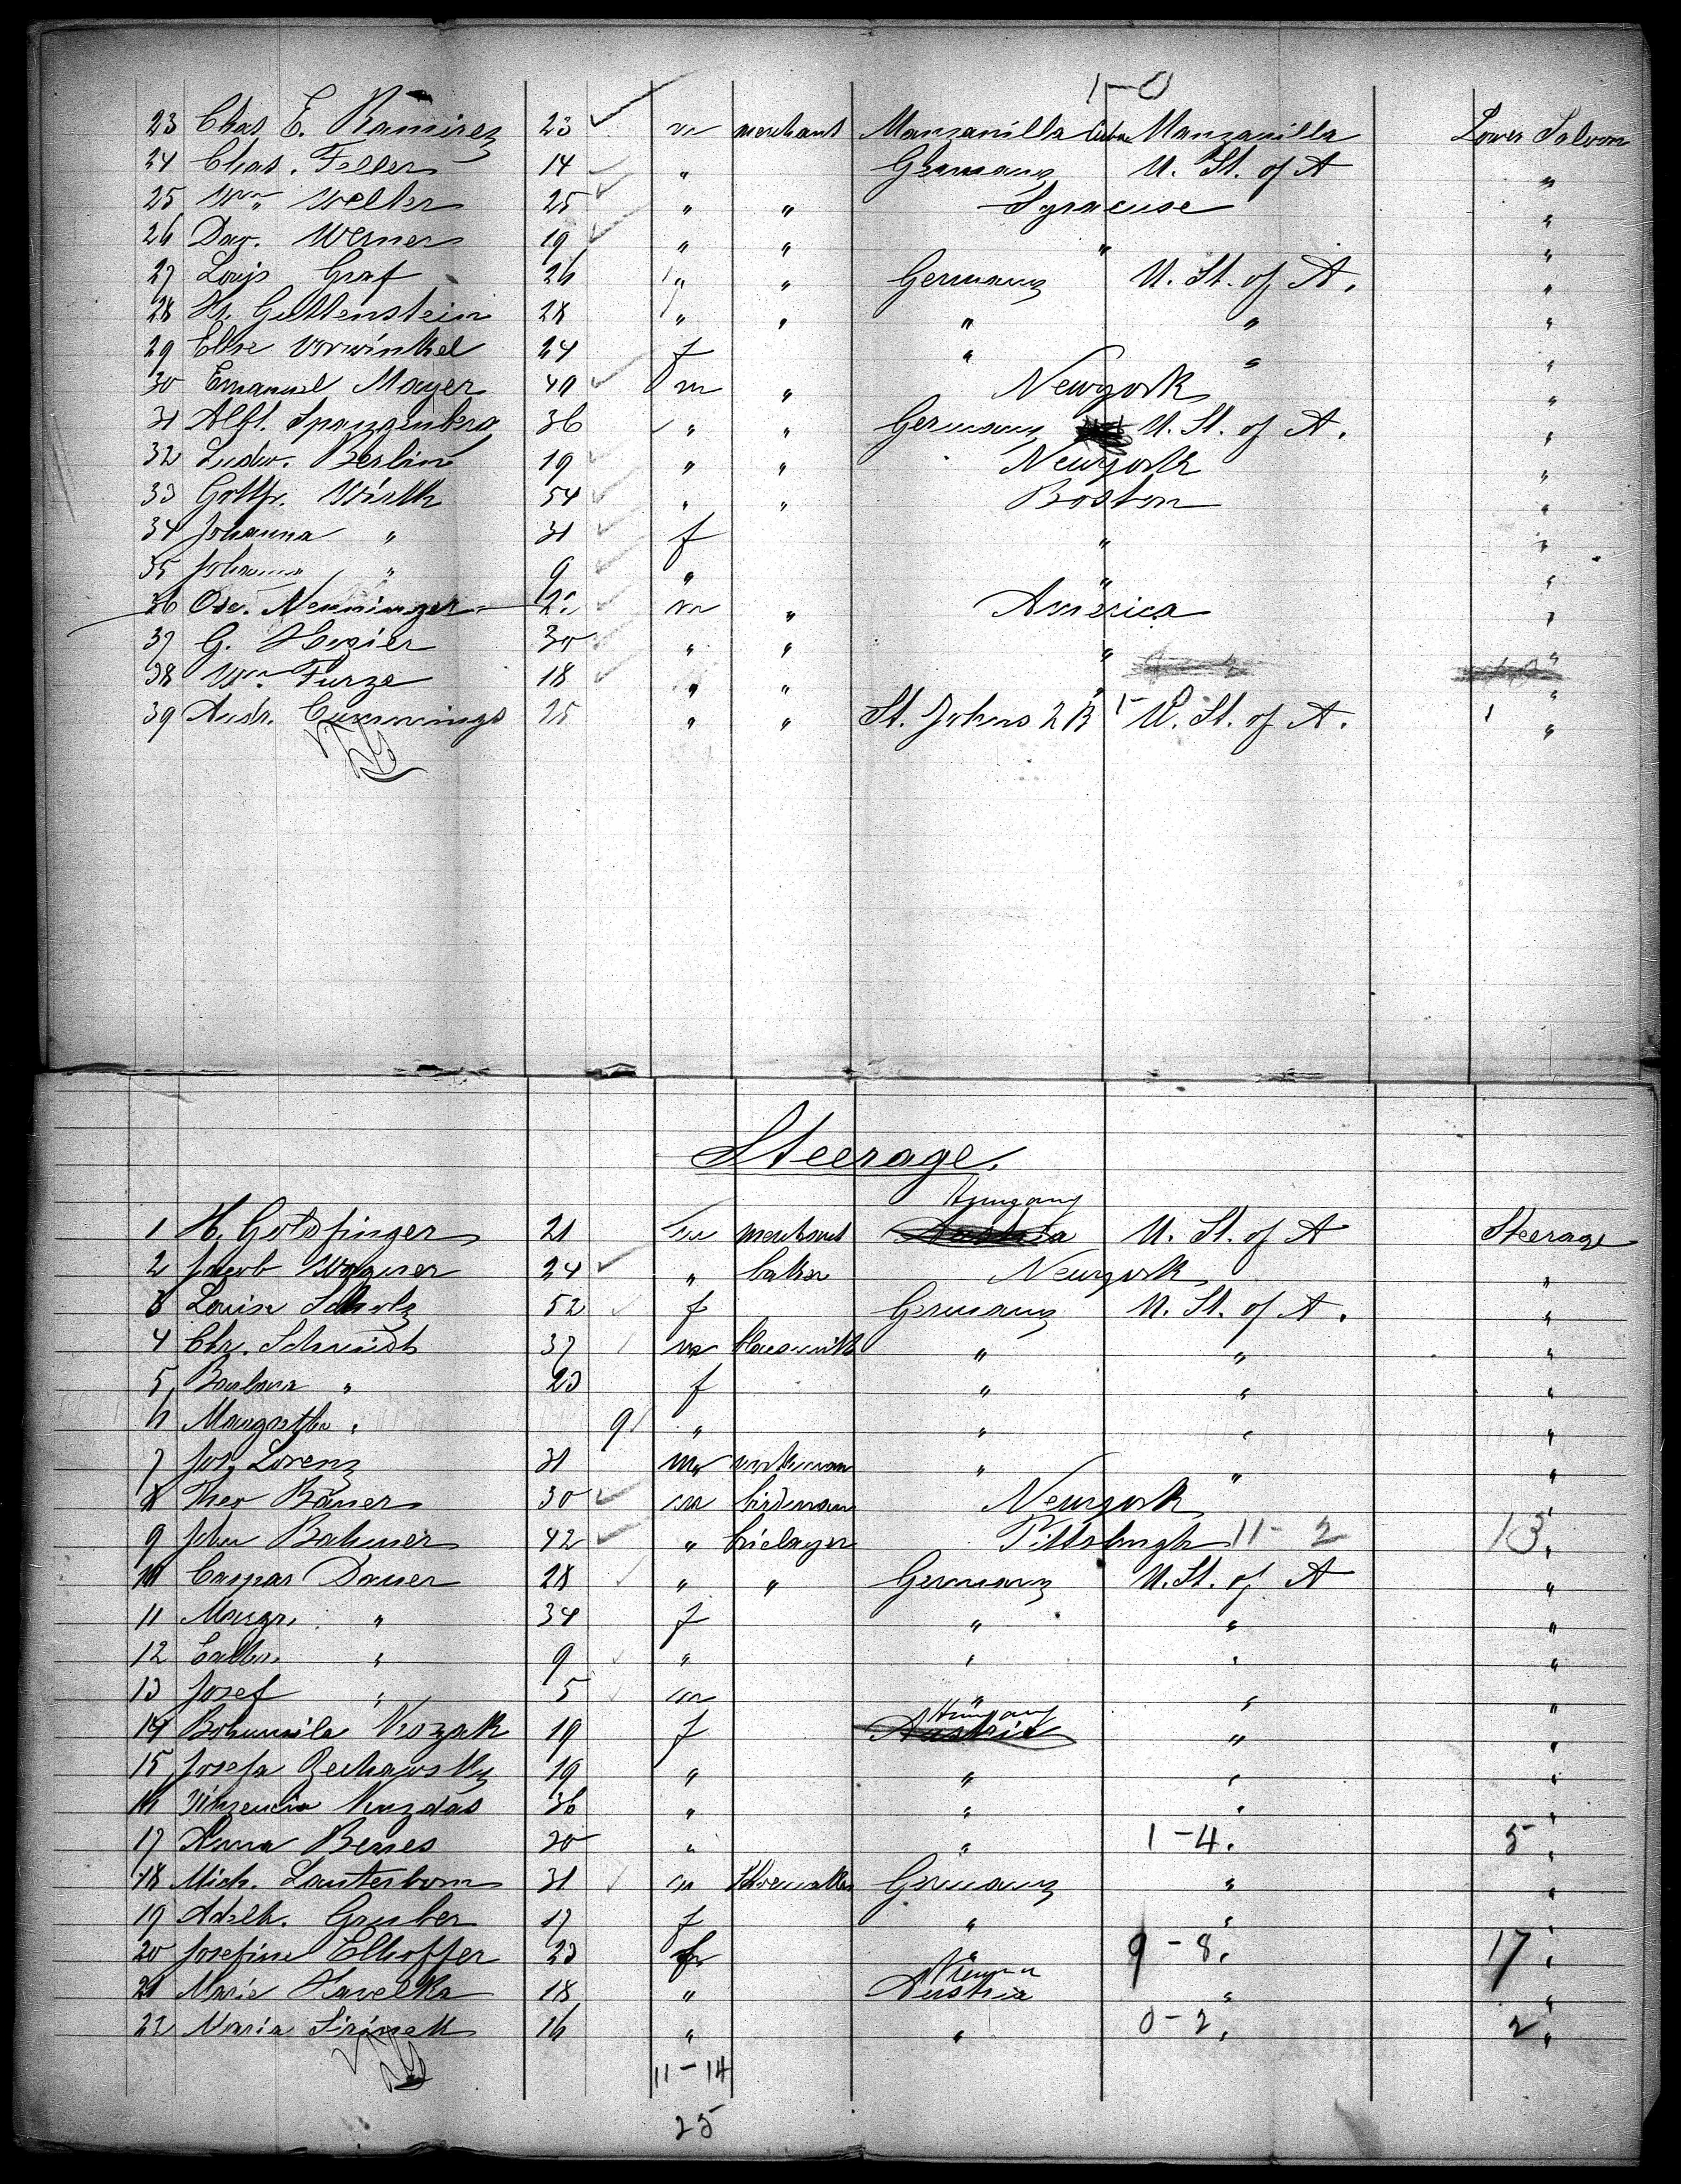 1-0
23 Chas E. Ramirez 23 m merchant Manzanilla Cuba Manzanilla Lower Saloon
24 Chas. Feller 14 " Germany U. St. of A "
25 Wm. Welker 25 " " Syracuse "
26 Dav. Werner 19 " " " "
27 Louis Graf 26 " " Germany U. St. of A. "
28 H. Guttenstein 28 " " " " "
29 Else Vorwinkel 24 f " " "
30 Emanuel Mayer 40 m " Newyork "
31 Albt. Spangenberg 36 " " Germany U. St. of A. "
32 Ludw. Berlin 19 " " Newyork "
33 Gottfr. Wirth 54 " " Boston "
34 Johanna " 31 f " "
35 Johanna " 9 " " "
36 Osc. Nenninger m " America "
37 G. Hezier 30 " " " "
38 Wm. Furze 18 " " "
39 Andr. Cummings 25 " " St. Johns 2 B 1- U. St. of A. 1 "
Steerage.
Hungary
1 H. Goldfinger 21 m merchant Austria U. St. of A Steerage
2 Jacob Wagner 24 " baker Newyork "
3 Louise Scholz 52 f Germany U. St. of A. "
4 Chr. Schmidt 37 m " " "
5 Barbara " 23 f " " "
6 Margretha " 9 " " " "
7 Jos. Lorenz 31 m workman " " "
8 Theo Bauer 30 m Newyork "
9 John Bahmer 42 " Pittsburgh 11-2 13 "
10 Caspar Dauer 28 " " Germany U. St. of A "
11 Margr. " 34 f " " "
12 Cathr. " 9 " " " "
13 Josef " 5 m " " "
Hungary
14 Bohumila Kozak 19 f Austria " "
15 Josefa 19 " " " "
16 36 " " " "
17 Anna Benes 20 " " 1-4. 5 "
18 Mich. Lauterborn 31 m Shoemaker Germany " "
19 Adelh. Gruber 17 f " " "
20 Josefine Elhoffer 23 f " 9-8. 17 "
21 Marie Havelka 18 " Austria " "
22 Maria 16 " " 0-2. 2 "
11-14
25